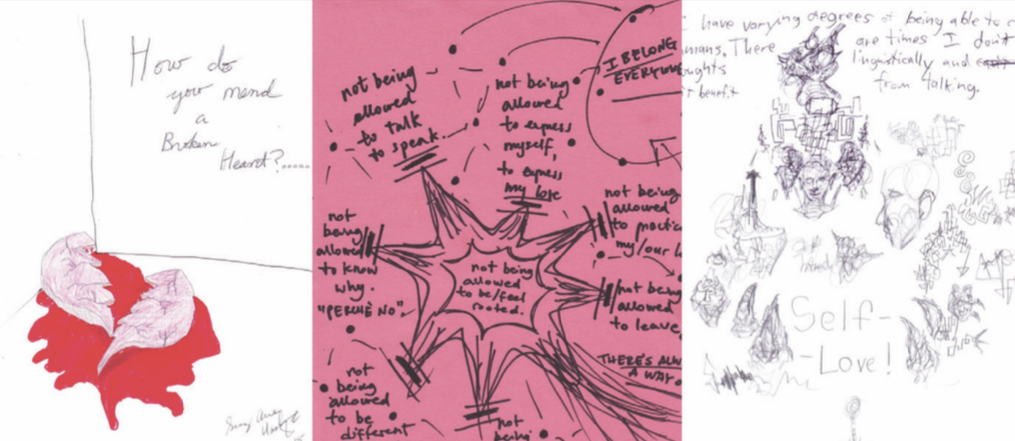 How do
you mend
a
Broken
Heart?.....
not being
allowed
to talk
to speak.
not being
allowed
to express
myself,
to express
my
I BELONG
EVERY
not being
allowed
to
my/our
not
being
allowed
to know
why.
"PERCHÈ NO".
not being
allowed
to be/feel
rooted.
not being
allowed
to leave,
THERE'S
A WAY
not
being
allowed
to be
different
not
being
have varying degrees of being able to
There are times I don't
linguistically and
from talking.
benefit
Self-
-Love!